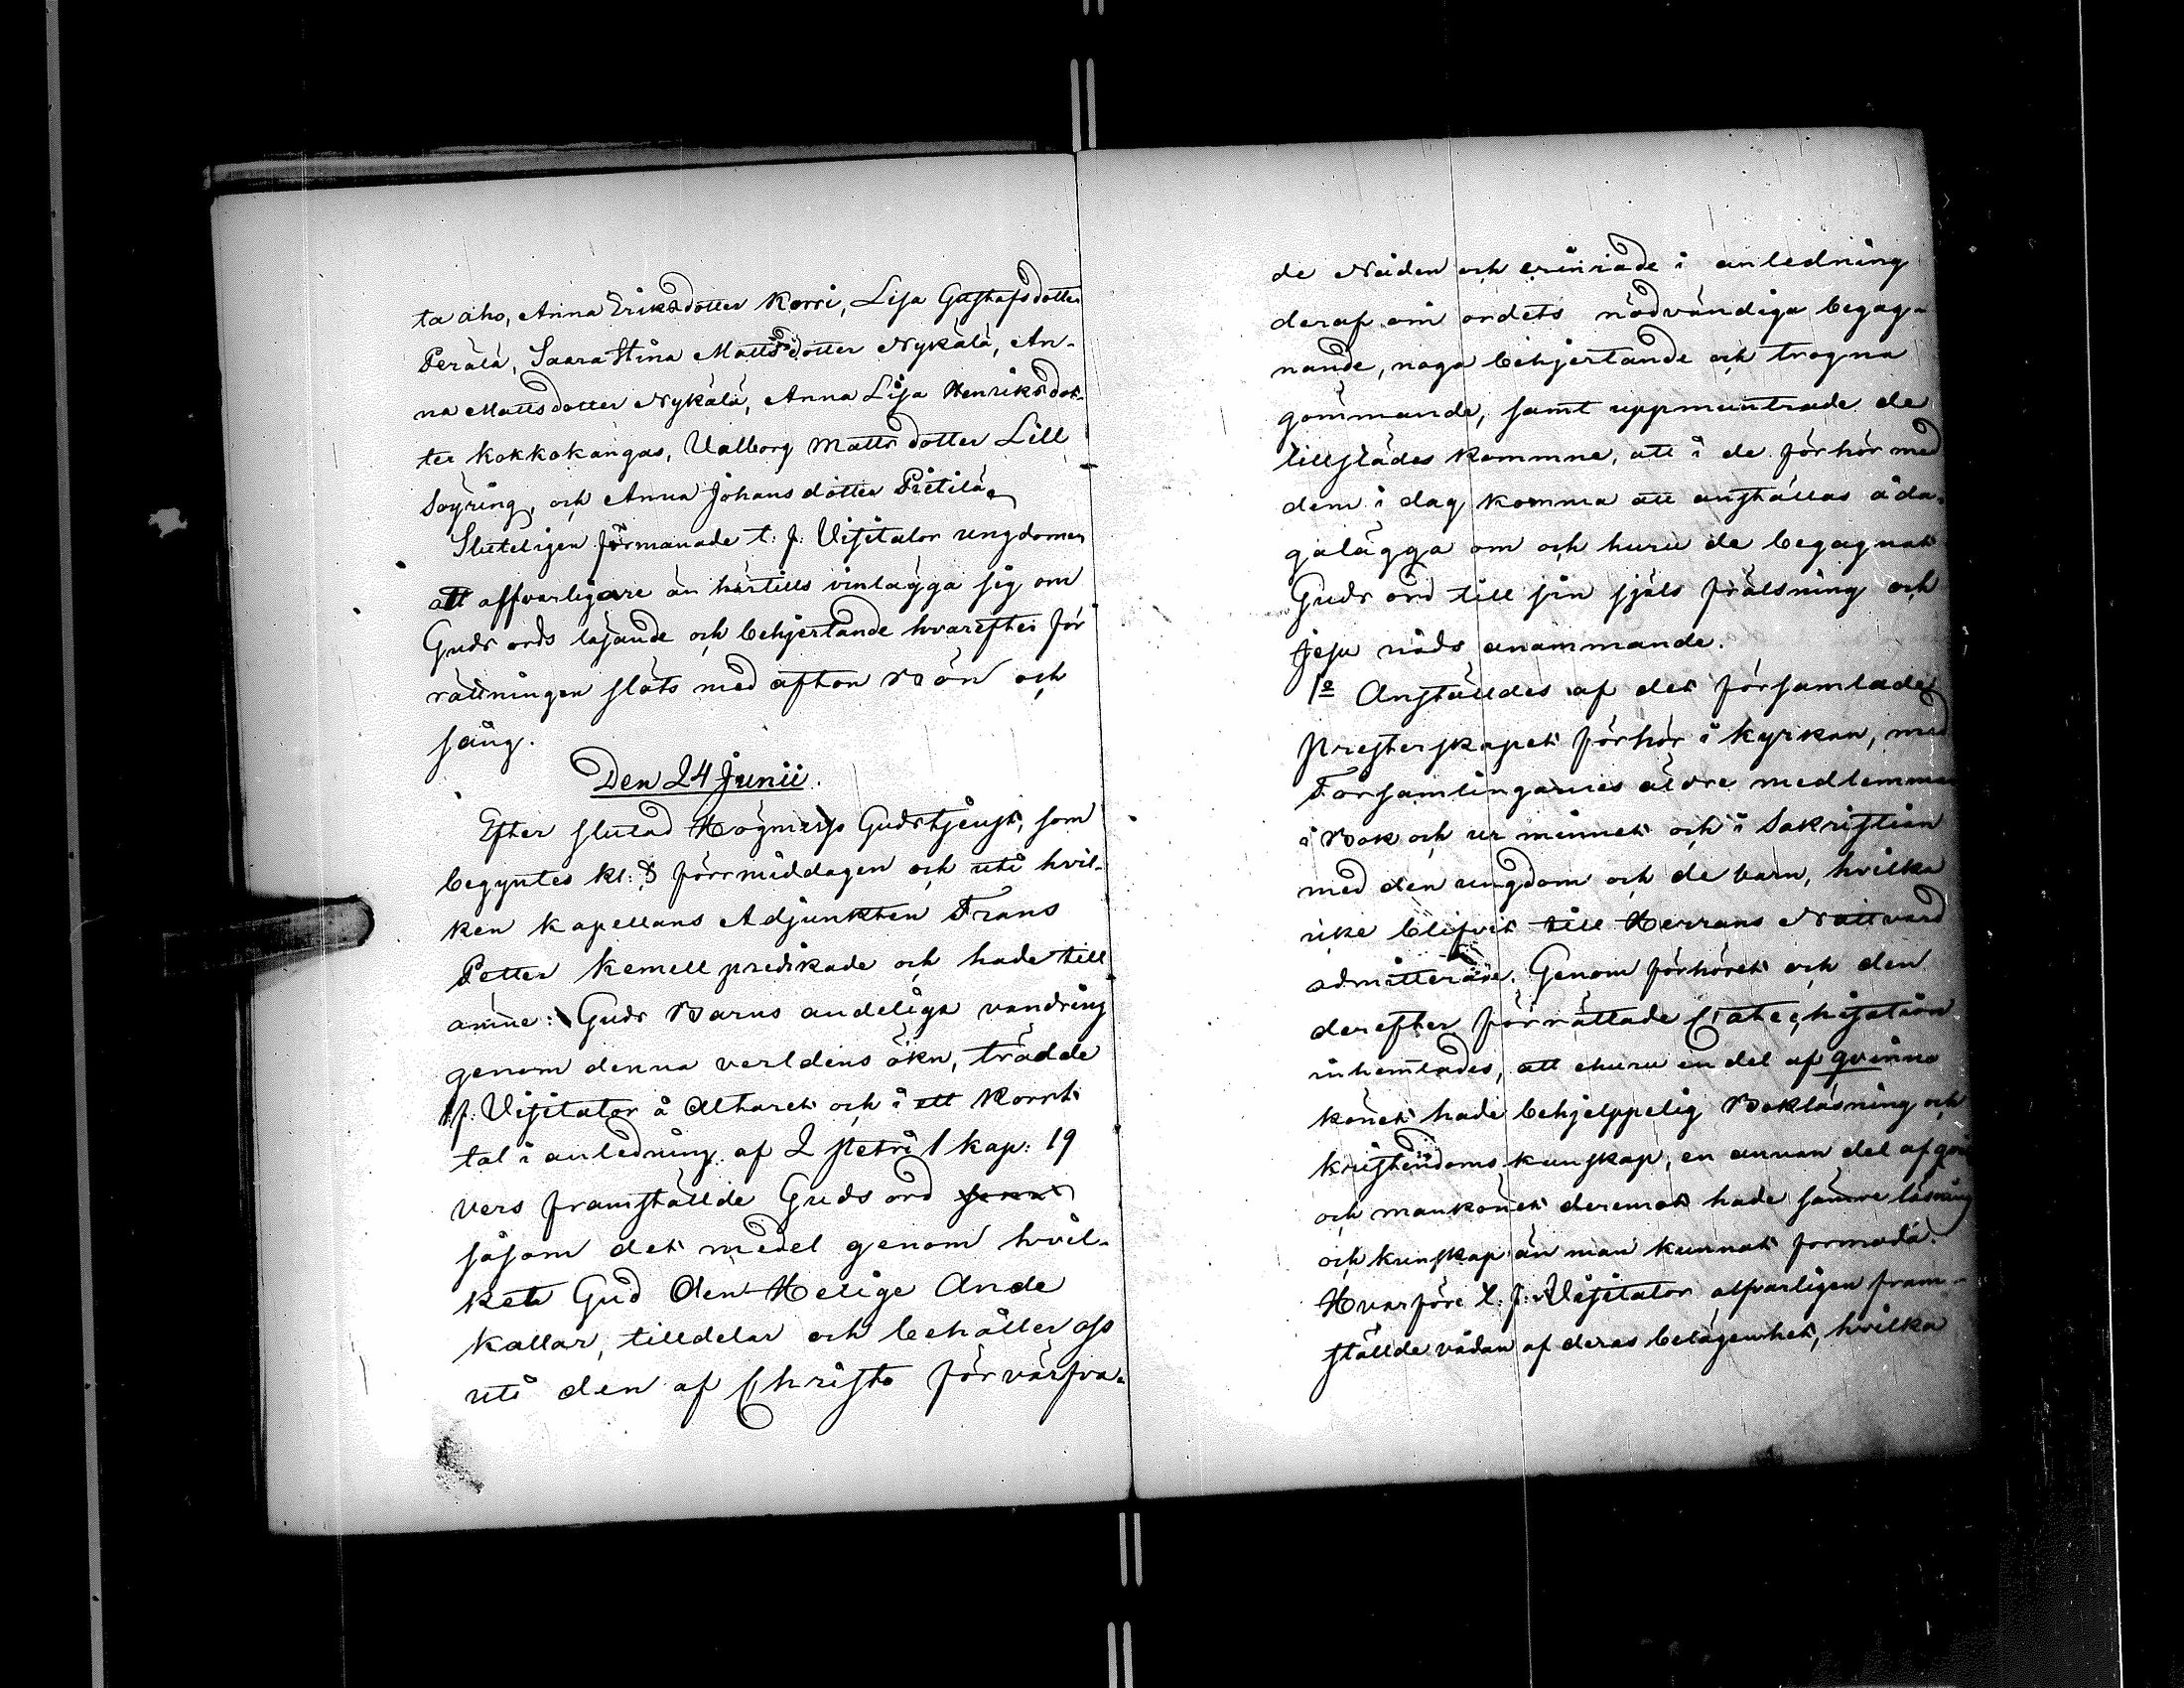 ta aho, Anna Eriksdotter Korri, Lisa Gustafsdotter
Perälä, Saara Stina Mattsdotter Nykälä, An-
na Mattsdotter Nykälä, Anna Lisa Henriksdot-
ter Kokkokangas, Valborg Mattsdotter Lill
Söyring, och Anna Johansdotter Pietilä,
Sluteligen förmanade t: f: Visitator ungdomen
att allfvarligare än härtills vinlägga sig om
Guds ords läsande och behjertande hvarefter för
rättningen slöts med afton Bön och
sång.
Den 24 Junii.
Efter slutad Högmesso Gudstjenst, som
begyntes kl: 8 förrmiddagen och uti hvil-
ken Kapellans Adjunkten Frans
Petter Kemell predikade och hade till
ämne: Guds Barns andeliga vandring
genom denna verldens ökn, trädde
t: f: Visitator å Altaret och i ett Korrt
tal i anledning af 2 Petri 1 Kap: 19
vers framställde Guds ord
såsom det medel genom hvil-
ket Gud Den Helige Ande
kallar, tilldelar och behåller oss
uti den af Christo förvärfva-
de Nåden och erinrade i anledning
deraf om ordets nödvändiga begag-
nande, noga behjertande och trogna
gömmande, samt uppmuntrade de
tillstädes komne, att i de förhör med
dem i dag komma att anställas åda-
galägga om och huru de begagnat
Guds ord till sin själs frälsning och
Jesu nåds anammande.
1o Anställdes af det församlade
Presterskapet förhör i kyrkan, med
Församlingarnes äldre medlemmar
i Bok och ur minnet och i Sakristian
med den ungdom och de barn, hvilka
icke blifvit till Herrans Nattvard
admitterade. Genom förhöret och den
derefter förrättade Catechisation
inhemtades, att ehuru en del af qvinno
könet hade behjelppelig Bokläsning och
kristendoms kunskap, en annan del af qvin
och mankönet deremot hade sämre läsning
och kunskap än man kunnat förmoda.
Hvarföre t: f: Visitator alfvarligen fram-
ställde vådan af deras belägenhet, hvilka